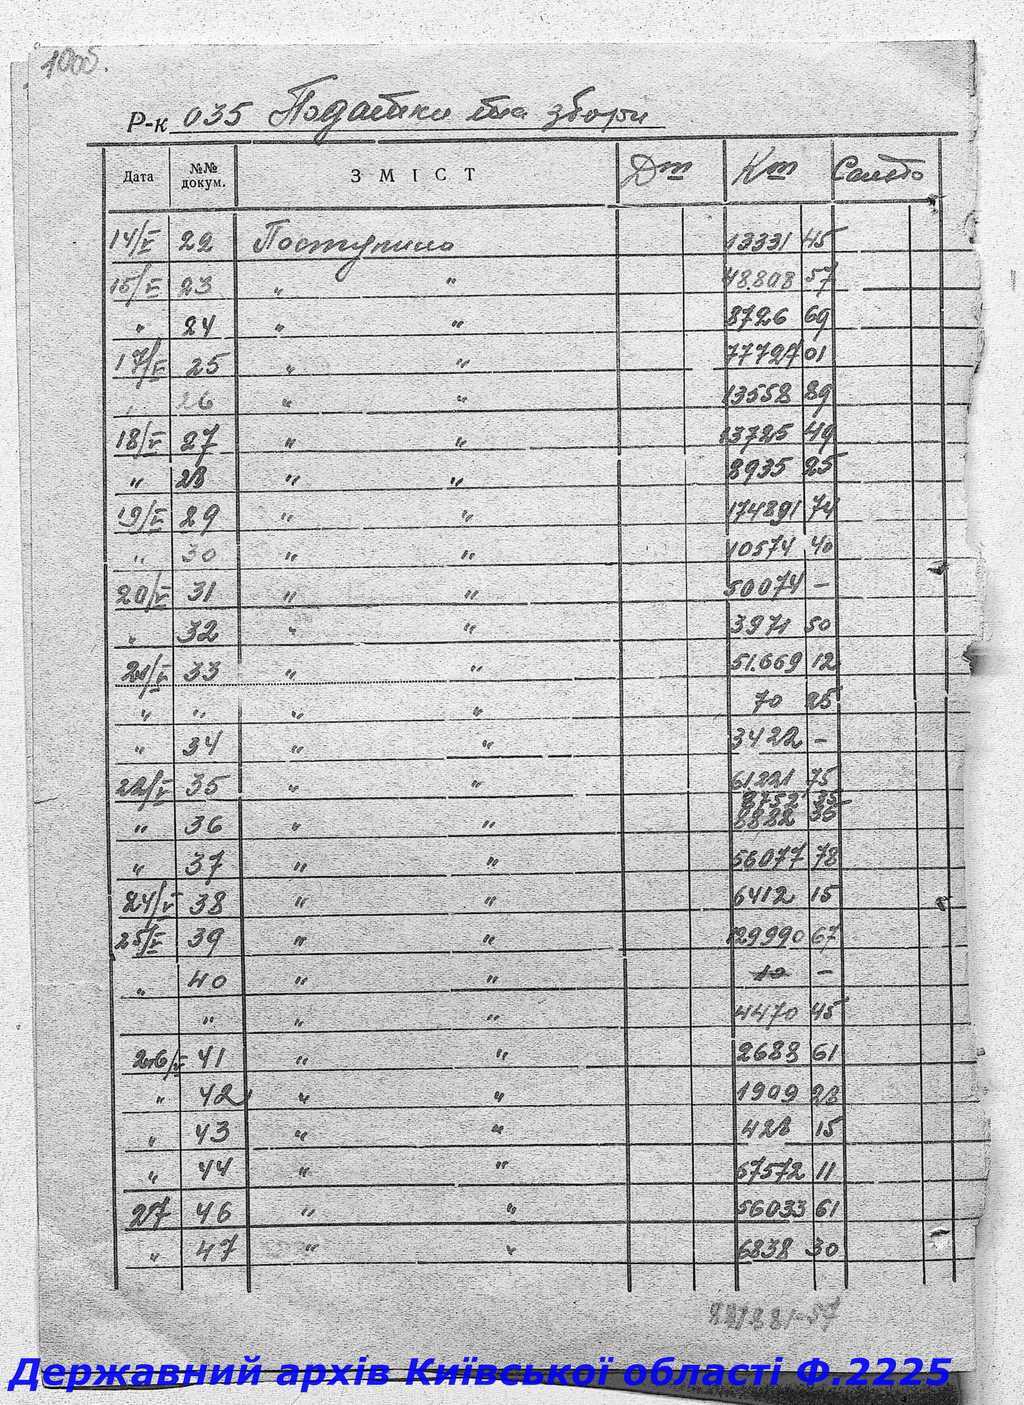 1005.
Р-к 035 Податки та збори
Дата №№ докум. ЗМІСТ Дт Кт Сальдо
14/V 22 Поступило 13331 45
15/V 23 " " 48.808 57
" 24 " " 8726 69
17/V 25 " " 77727 01
" 26 " " 13558 89
18/V 27 " " 13725 49
" 28 " " 8935 25
19/V 29 " " 174891 74
" 30 " " 10574 40
20/V 31 " " 50074 —
" 32 " " 3971 50
21/V 33 " " 51.669 12
" " " " 70 25
" 34 " " 3422 —
22/V 35 " " 61221 75
8752 35
" 36 " " 8882 35
" 37 " " 56077 78
24/V 38 " " 6412 15
25/V 39 " " 129990 67
" 40 " " 10 —
" " " 4470 45
26/V 41 " " 2683 61
" 42 " " 1909 28
" 43 " " 428 15
" 44 " " 67572 11
27 46 " " 56033 61
" 47 " " 6838 30
Державний архів Київської області Ф.2225